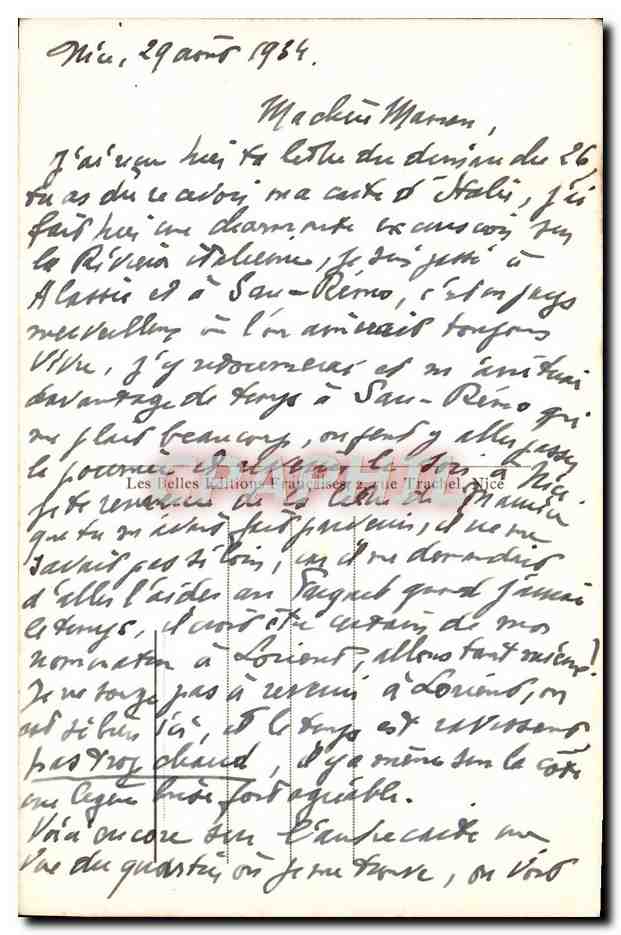 Nice, 29 août 1934.
Ma chère Maman,
J'ai reçu hier ta lettre du dimanche 26,
tu as dû recevoir ma carte d'Italie, j'ai
fait hier une charmante excursion sur
la Riviera italienne, je suis passé à
Alassio et à San-Rémo, c'est un pays
merveilleux où l'on aimerait toujours
vivre, j'y retournerai et m'arrêterai
davantage de temps à San-Rémo qui
me plait beaucoup, on peut y aller passer
la journée et revenir le soir à Nice.
Les Belles Editions Françaises, 2, rue Trachel, Nice
Je te remercie de la lettre de Maurice
que tu m'avais fait parvenir, il ne me
savait pas si loin, car il me demandait
d'aller l'aider au quand j'aurai
le temps, il croit être certain de mon
nomination à Lorient, allons tant mieux!
Je ne songe pas à revenir à Lorient, on
est si bien ici, et le temps est ravissant
pas trop chaud, il y a même sur la côte
une légère brise fort agréable.
Voici encore sur l'autre carte une
vue du quartier où je me trouve, on voit